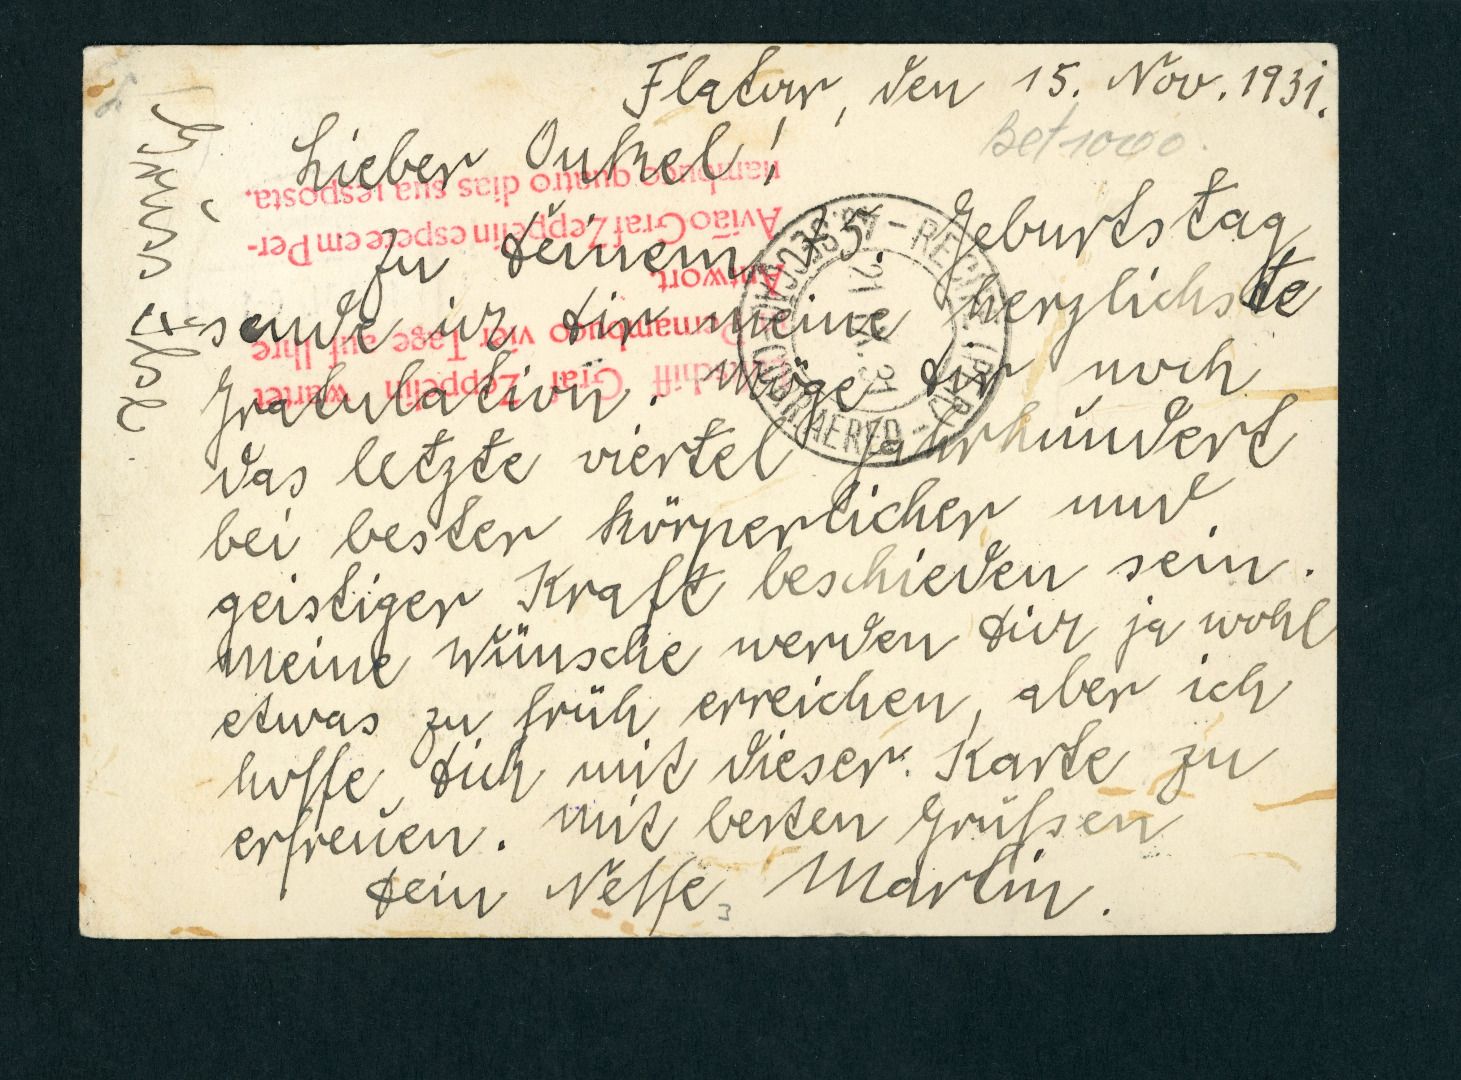 Flatow, den 15. Nov. 1931.
Bet 1000.
Lieber Onkel!
Zu deinem 75. Geburtstag
sende ich dir meine herzlichste
Gratulation. Möge dir noch
das letzte viertel Jahrhundert
bei bester körperlicher und
geistiger Kraft beschieden sein.
Meine Wünsche werden dich ja wohl
etwas zu früh erreichen, aber ich
hoffe, dich mit dieser Karte zu
erfreuen. Mit besten Grüßen
dein Neffe Martin.
3
Luftschiff Graf Zeppelin wartet
Pernambuco vier Tage auf Ihre
Antwort.
Avião Graf Zeppelin espere em Per-
nambuco quatro dias sua resposta.
RECIFE (PERN.)
21 31